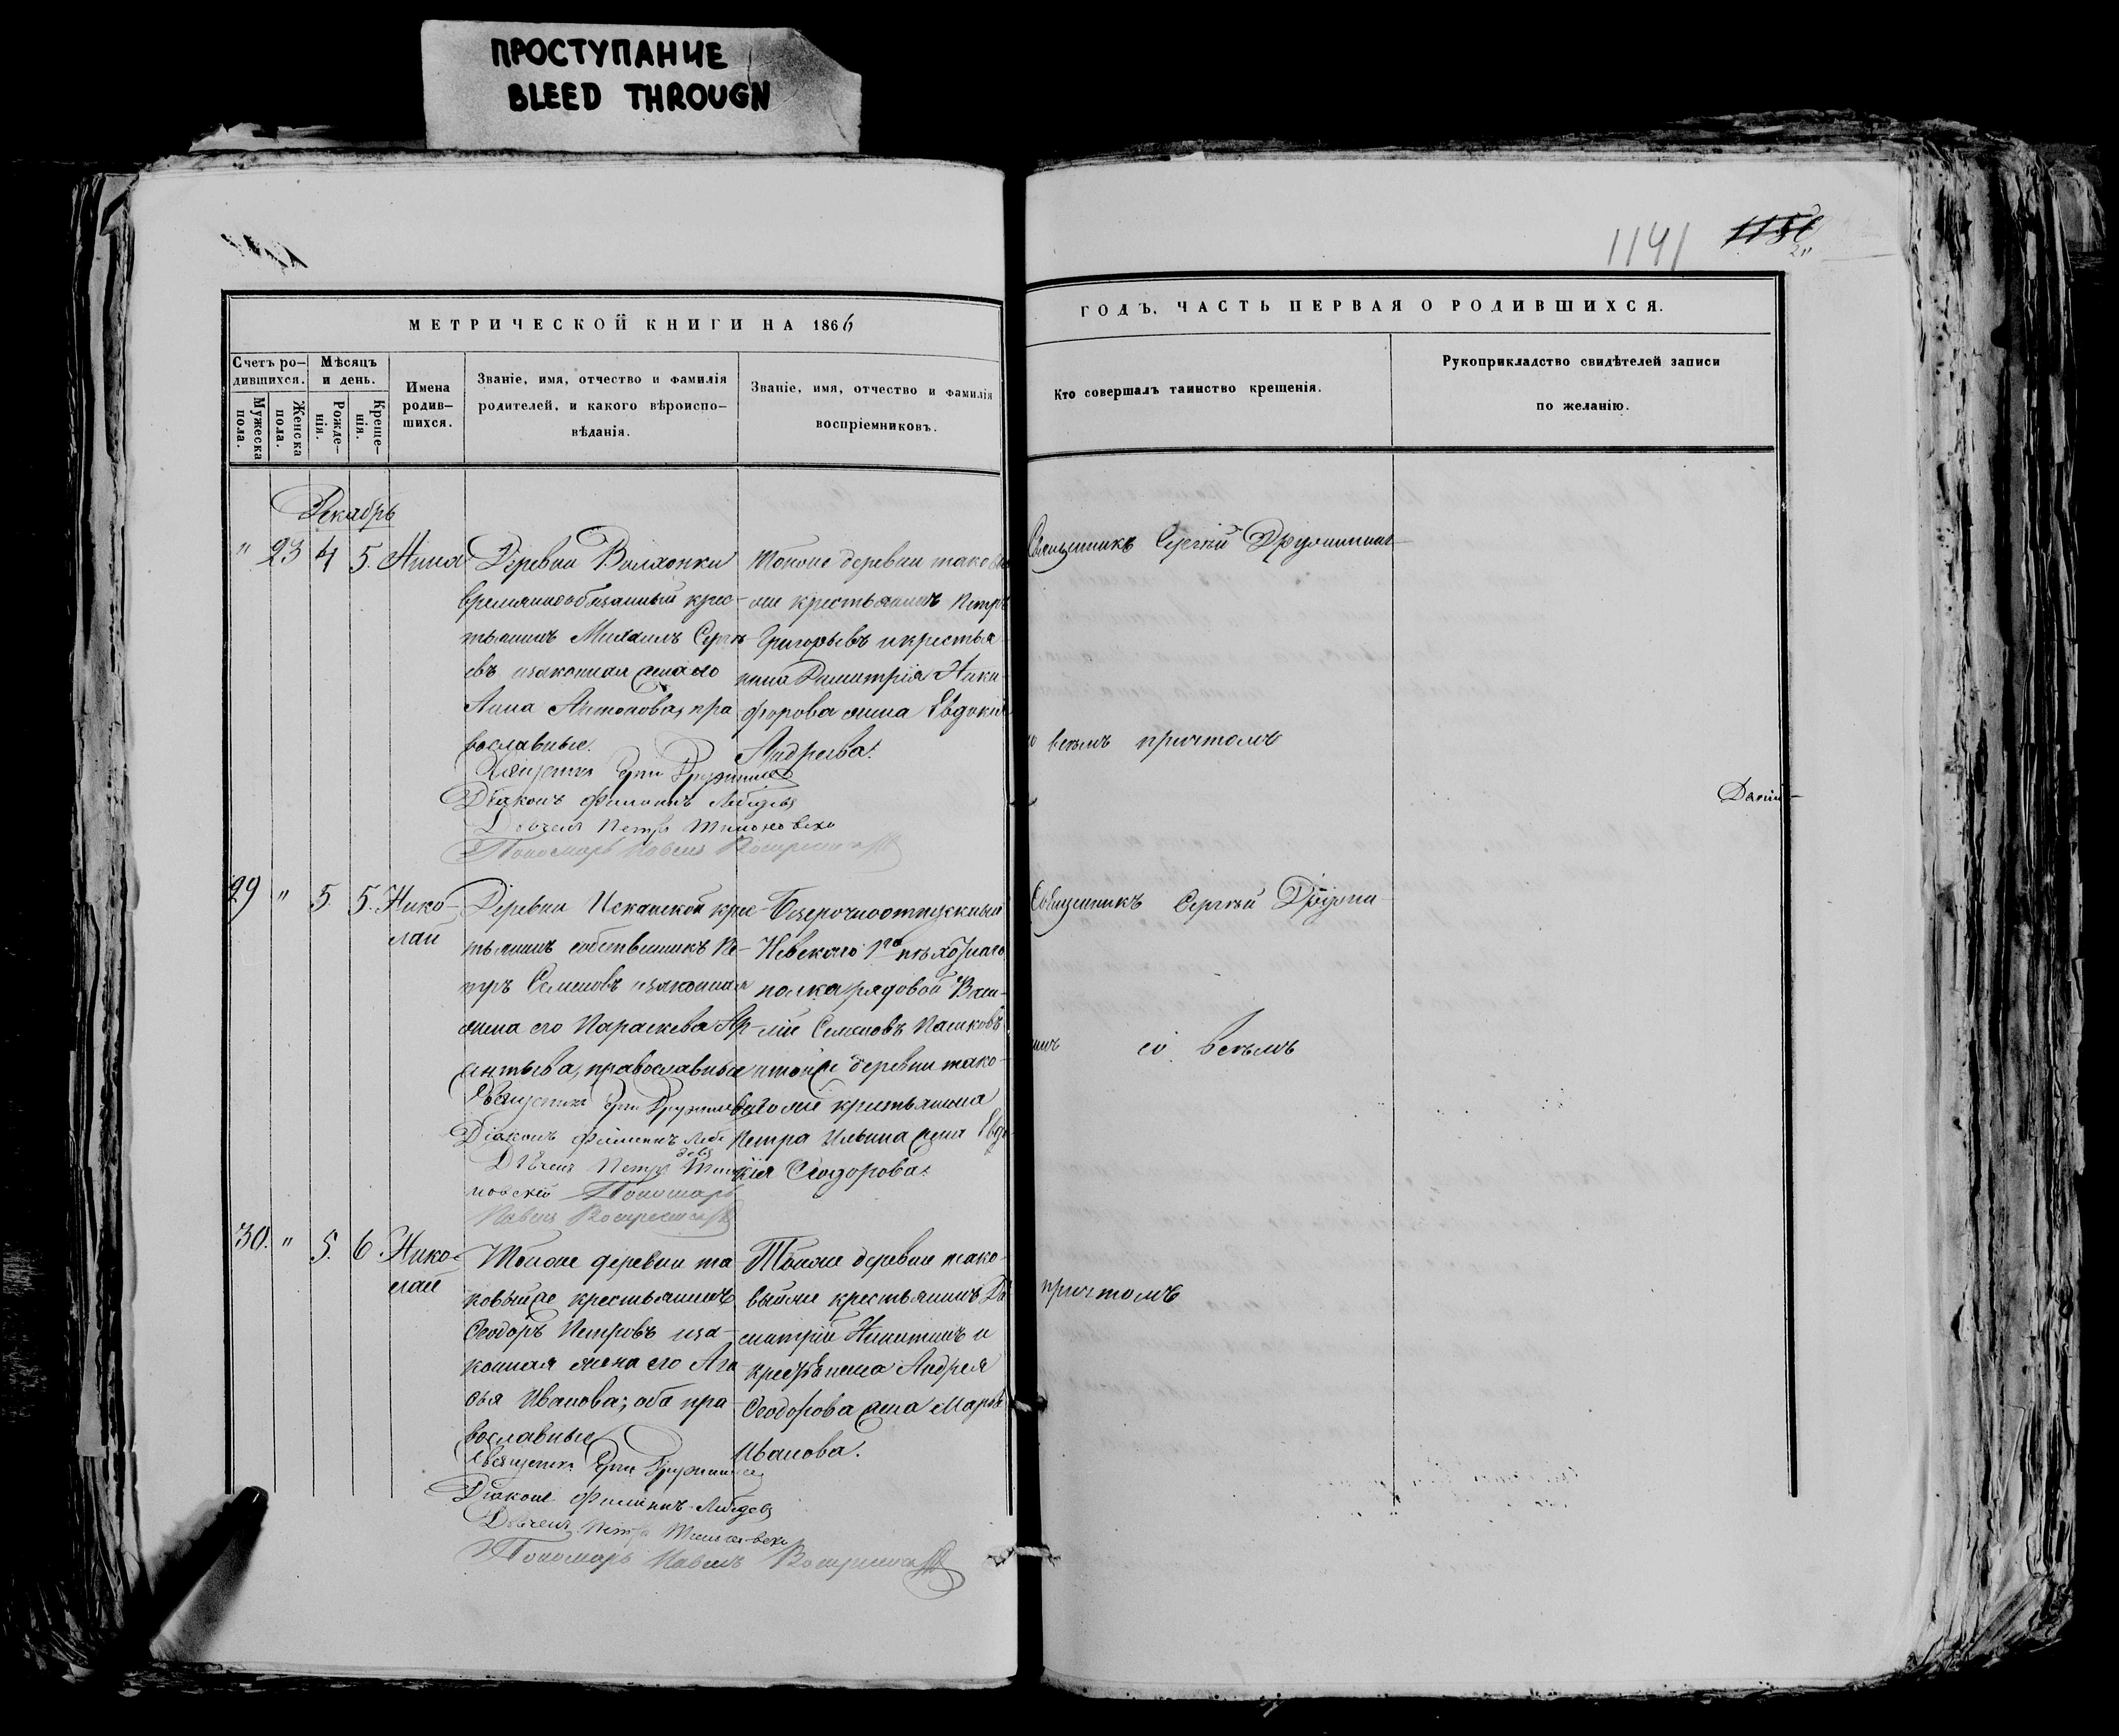 ПРОСТУПАНИЕ
BLEED THROUGN
1141
МЕТРИЧЕСКОЙ КНИГИ НА 1866
ГОДЪ, ЧАСТЬ ПЕРВАЯ О РОДИВШИХСЯ.
Счетъ ро-
дившихся.
Мужеска
пола.
Женска
пола.
Мѣсяцъ
и день.
Рожде-
нія.
Креще-
нія.
Имена
родив-
шихся.
Званіе, имя, отчество и фамилія
родителей, и какого вѣроиспо-
вѣданія.
Званіе, имя, отчество и фамилія
воспріемниковъ.
Кто совершалъ таинство крещенія.
Рукоприкладство свидѣтелей записи
по желанію.
Декабрь
" 23 4 5. Анна
Деревни
временнообязанный крес-
тьянинъ Михаилъ Сергѣ
евъ изаконная жена его
Анна Антонова, пра
вославные.
Священникъ Сергій Дружининъ
Діаконъ Филимонъ Лебедевъ
Дьячекъ Петръ
Пономарь Павелъ
Тойже деревни таковы
же крестьянинъ Петръ
Григорьевъ и крестья
нина Димитрія Ники
форова жена Евдокія
Андреева.
Священникъ Сергій Дружининъ
со всемъ причтомъ
29 " 5. 5. Нико-
лай
Деревни Исканской крес
тьянинъ собственникъ Пе-
тръ Семеновъ изаконная
жена его Параскева Ар
антьева, православные
Священникъ Сергій Дружининъ
Діаконъ Филимонъ Лебе
девъ
Дьячекъ Петръ
Пономарь
Павелъ
Безсрочноотпускный
Невскаго 1го пѣхотнаго
полка рядовой Васи-
лій Семеновъ Пашковъ
итойже деревни тако-
вагоже крестьянина
Петра Ильина жена Евдо
кія Ѳеодорова.
Священникъ Сергій Дружи
нинъ со всемъ
причтомъ
30. " 5. 6. Нико-
лай
Тойже деревни та
ковыйже крестьянинъ
Ѳеодоръ Петровъ иза-
конная жена его Ага
ѳья Иванова; оба пра
вославные
Священникъ Сергій Дружининъ
Діаконъ Филимонъ Лебедевъ
Дьячекъ Петръ
Пономарь Павелъ
Тойже деревни тако-
выйже крестьянинъ Ди
митрій Никитинъ и
крестьянина Андрея
Ѳеодорова жена Марья
Иванова.